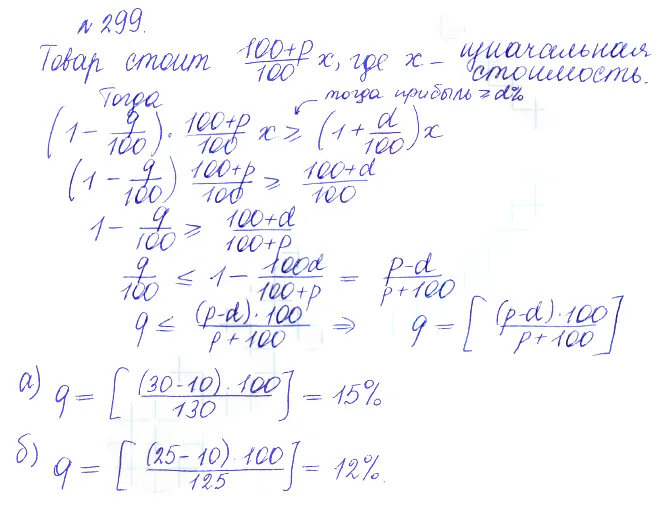 № 299.
Товар стоит (100+p)/100 x, где x – изначальная стоимость.
Тогда
тогда прибыль ≥ d%
(1 − q/100) · (100+p)/100 x ≥ (1 + d/100) x
(1 − q/100) (100+p)/100 ≥ (100+d)/100
1 − q/100 ≥ (100+d)/(100+p)
q/100 ≤ 1 − (100d)/(100+p) = (p−d)/(p+100)
q ≤ ((p−d)·100)/(p+100) ⇒ q = [((p−d)·100)/(p+100)]
а) q = [((30−10)·100)/130] = 15%
б) q = [((25−10)·100)/125] = 12%.